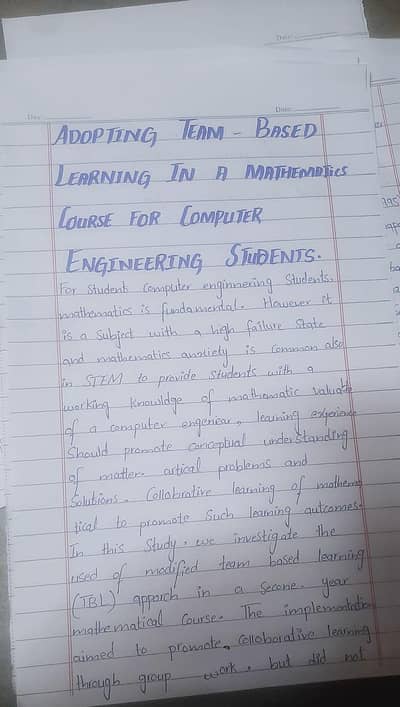 Date:
Day:
Date:
ADOPTING TEAM - BASED
LEARNING IN A MATHEMATICS
COURSE FOR COMPUTER
ENGINEERING STUDENTS.
For student computer enginnering students.
mathematics is fundamental. However it
is a subject with a high failure state
and mathematics anxiety is common also
in STEM to provide students with a
working knowldge of mathematic valuable
of a computer engenear, learning experience
should promote conceptual understanding
of matter. artical problems and
solutions. Collobrative learning of mathema
tical to promote such learning outcomes.
In this study. we investigate the
used of modified team based learning
(TBL) apporch in a secone. year
mathematical course. The implementation
aimed to promote. Colloborative learning
through group work. but did not